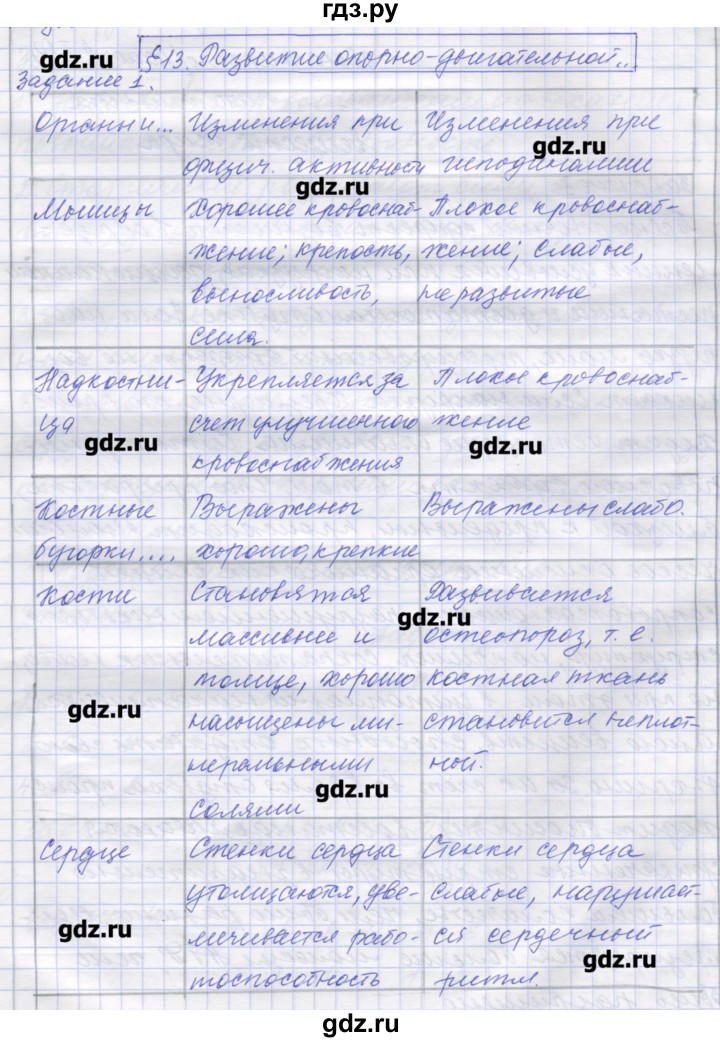 гдз.ру
§13. Развитие опорно-двигательной..
gdz.ru
Задание 1.
Органы и... Изменения при Изменения при
gdz.ru
физич. активности гиподинамии
gdz.ru
Мышцы Хорошее кровоснаб- Плохое кровоснаб-
жение; крепость, жение; слабые,
выносливость, неразвитые
сила.
Надкостни- Укрепляется за Плохое кровоснаб-
ца счет улучшенного жение
gdz.ru gdz.ru
кровоснабжения
Костные Выражены Выражены слабо.
бугорки.... хорошо, крепкие
Кости Становятся Развивается
gdz.ru
массивнее и остеопороз, т. е.
толще, хорошо костная ткань
gdz.ru
насыщены ми- становится неплот-
неральными ной.
gdz.ru
солями
Сердце Стенки сердца Стенки сердца
утолщаются, уве- слабые, нарушает-
gdz.ru
личивается рабо- ся сердечный
gdz.ru
тоспособность ритм.
gdz.ru